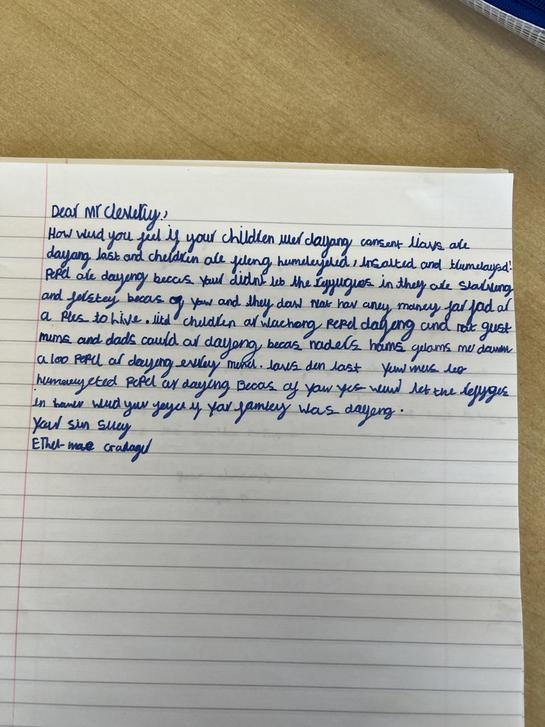 Dear Mr Cleverly,,
How wud you feel if your children wer dayang consent liavs are
dayang last and cheldren are feleng humeleyeted, insalted and traumelaysd!
PePel are dayeng becus your didnt let the refyugies in they are starveing
and ferstey becas of yaw and they daw not hav aney maney far fad or
a Ples to hive. litil children ar wachang PePel dageng and not gust
mums and dads could ar dayeng becas nadels hams
a loo PePel ar dayeng evrey menet. lavs den last yaw mus
humeuyeted PePel ar dayeng Becas of yaw yes wewd let the reffyges
in tawer wud yaw feyel if yar famley was dayeng.
Your sin serey
EThel-mae